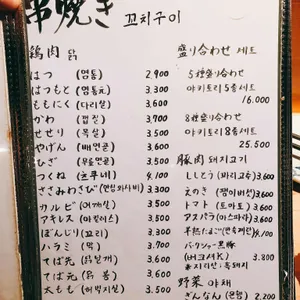 串焼き 꼬치구이
鶏肉 닭
はつ (염통) 2,900
はつもと (염통초) 3,600
ももにく (다리살) 3,600
かわ (껍질) 3,600
せせり (목살) 3,500
やげん (배연골) 3,600
ひざ (무릎연골) 3,500
つくね (츠쿠네) 4,100
ささみわさび (안심와사비) 3,300
カルビ (어깨살) 3,500
アキレス (아킬레스) 3,500
ぼんじり (꼬리) 3,300
ハラミ (막) 3,700
てば先 (닭날개) 3,600
てば元 (닭봉) 3,600
太もも (허벅지살) 3,500
盛り合わせ 세트
5種盛り合わせ
야키토리 5종세트
16.000
8種盛り合わせ
야키토리 8종세트
25.500
豚肉 돼지고기
ししとう (꽈리고추) 3,600
えのき (팽이버섯) 3,600
トマト (토마토) 3,600
アスパラ (아스파라) 3,600
半熟たまご 4,100
バークシャー黒豚
(버크셔K) 3.800
野菜 야채
ぎんなん (은행) 2,200